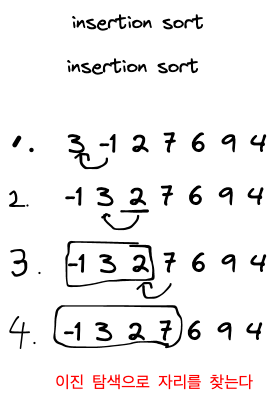 insertion sort
insertion sort
1. 3 -1 2 7 6 9 4
2. -1 3 2 7 6 9 4
3. -1 3 2 7 6 9 4
4. -1 3 2 7 6 9 4
이진 탐색으로 자리를 찾는다